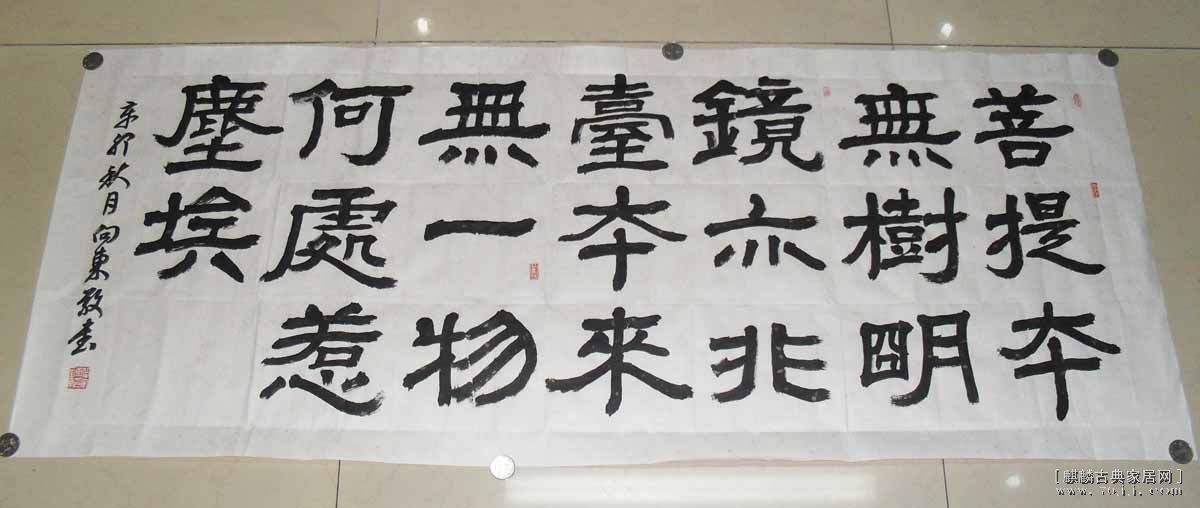 菩提本
無樹明
鏡亦非
臺本來
無一物
何處惹
塵埃
辛卯秋月向東敬書
[麒麟古典家居网]